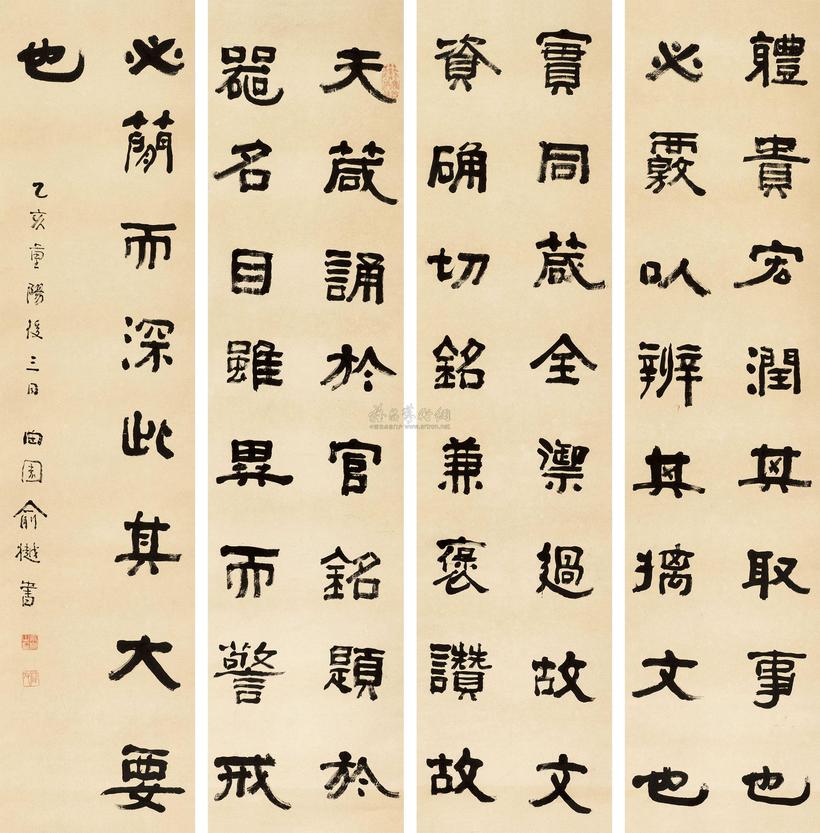 夫箴誦於官銘題於
器名目雖異而警戒
實同箴全禦過故文
資确切銘兼褒讚故
體貴宏潤其取事也
必覈以辨其摛文也
必簡而深此其大要
也
乙亥重陽後三日曲園俞樾書